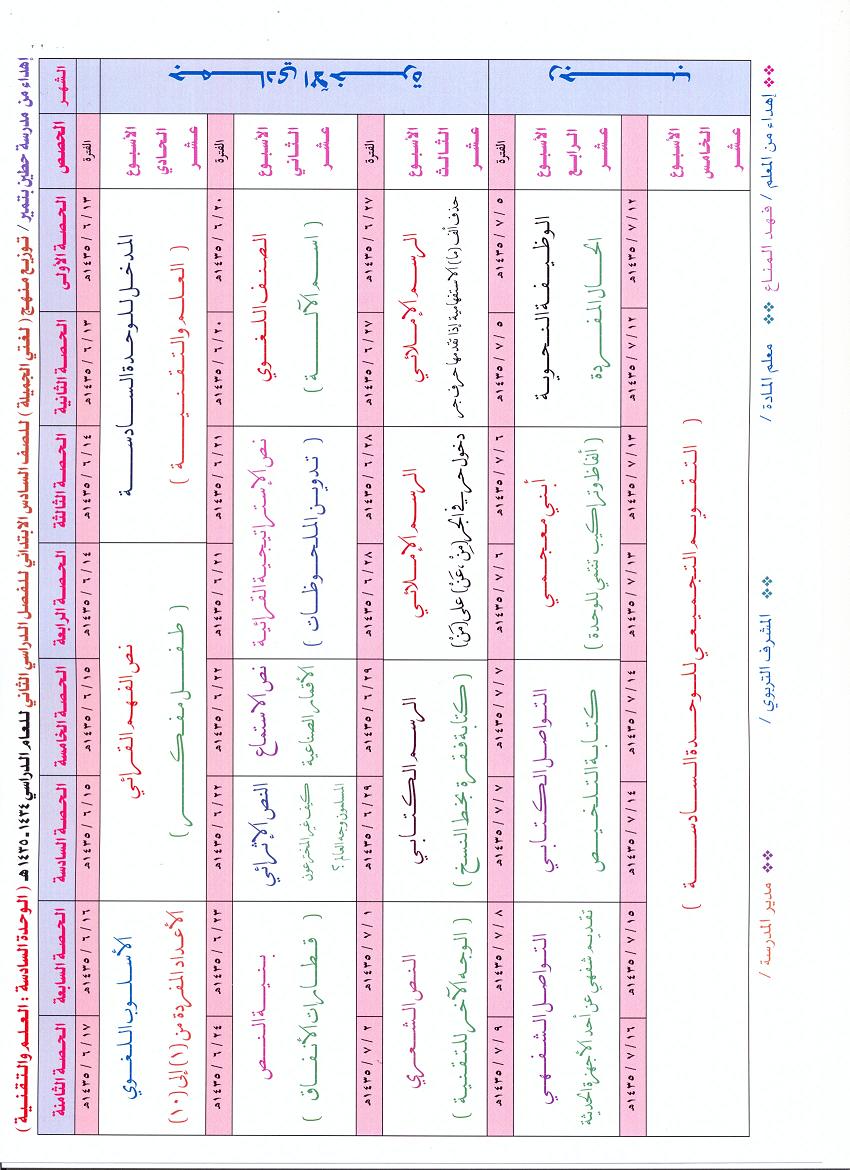 إهداء من مدرسة حطين بتمير / توزيع منهج ( لغتي الجميلة ) للصف السادس الابتدائي للفصل الدراسي الثاني للعام الدراسي ١٤٣٤ - ١٤٣٥ هـ ( الوحدة السادسة : العلم والتقنية )
الشهر
جمادى الآخرة
رجب
الحصص الحصة الأولى الحصة الثانية الحصة الثالثة الحصة الرابعة الحصة الخامسة الحصة السادسة الحصة السابعة الحصة الثامنة
الفترة ١٤٣٥ / ٦ / ١٣هـ ١٤٣٥ / ٦ / ١٣هـ ١٤٣٥ / ٦ / ١٤هـ ١٤٣٥ / ٦ / ١٤هـ ١٤٣٥ / ٦ / ١٥هـ ١٤٣٥ / ٦ / ١٥هـ ١٤٣٥ / ٦ / ١٦هـ ١٤٣٥ / ٦ / ١٧هـ
الأسبوع الحادي عشر
المدخل للوحدة السادسة
( العلم والتقنية )
نص الفهم القرائي
( طفل مفكر )
الأسلوب اللغوي
الأعداد المفردة من (١) إلى (١٠)
الفترة ١٤٣٥ / ٦ / ٢٠هـ ١٤٣٥ / ٦ / ٢٠هـ ١٤٣٥ / ٦ / ٢١هـ ١٤٣٥ / ٦ / ٢١هـ ١٤٣٥ / ٦ / ٢٢هـ ١٤٣٥ / ٦ / ٢٢هـ ١٤٣٥ / ٦ / ٢٣هـ ١٤٣٥ / ٦ / ٢٤هـ
الأسبوع الثاني عشر
الصنف اللغوي
( اسم الآلة )
نص الإستراتيجية القرائية
( تدوين الملحوظات )
نص الاستماع
الأقمار الصناعية
النص الإثرائي
كيف غير المخترعون
المسلمون وجه العالم ؟
بنية النص
( قطارات الأنفاق )
الفترة ١٤٣٥ / ٦ / ٢٧هـ ١٤٣٥ / ٦ / ٢٧هـ ١٤٣٥ / ٦ / ٢٨هـ ١٤٣٥ / ٦ / ٢٨هـ ١٤٣٥ / ٦ / ٢٩هـ ١٤٣٥ / ٦ / ٢٩هـ ١٤٣٥ / ٧ / ١هـ ١٤٣٥ / ٧ / ٢هـ
الأسبوع الثالث عشر
الرسم الإملائي
حذف ألف (ما) الاستفهامية إذا تقدمها حرف جر
الرسم الإملائي
دخول حرفي الجر (مِنْ ، عَنْ) على (مَنْ)
الرسم الكتابي
( كتابة فقرة بخط النسخ )
النص الشعري
( الوجه الآخر للتقنية )
الفترة ١٤٣٥ / ٧ / ٥هـ ١٤٣٥ / ٧ / ٥هـ ١٤٣٥ / ٧ / ٦هـ ١٤٣٥ / ٧ / ٦هـ ١٤٣٥ / ٧ / ٧هـ ١٤٣٥ / ٧ / ٧هـ ١٤٣٥ / ٧ / ٨هـ ١٤٣٥ / ٧ / ٩هـ
الأسبوع الرابع عشر
الوظيفة النحوية
الحال المفردة
أبني معجمي
( ألفاظ وتراكيب تنتمي للوحدة )
التواصل الكتابي
كتابة التلخيص
التواصل الشفهي
تقديم شفهي عن أحد الأجهزة الحديثة
١٤٣٥ / ٧ / ١٢هـ ١٤٣٥ / ٧ / ١٢هـ ١٤٣٥ / ٧ / ١٣هـ ١٤٣٥ / ٧ / ١٣هـ ١٤٣٥ / ٧ / ١٤هـ ١٤٣٥ / ٧ / ١٤هـ ١٤٣٥ / ٧ / ١٥هـ ١٤٣٥ / ٧ / ١٦هـ
الأسبوع الخامس عشر
( التقويم التجميعي للوحدة السادسة )
إهداء من المعلم / فهد المناع معلم المادة / المشرف التربوي / مدير المدرسة /